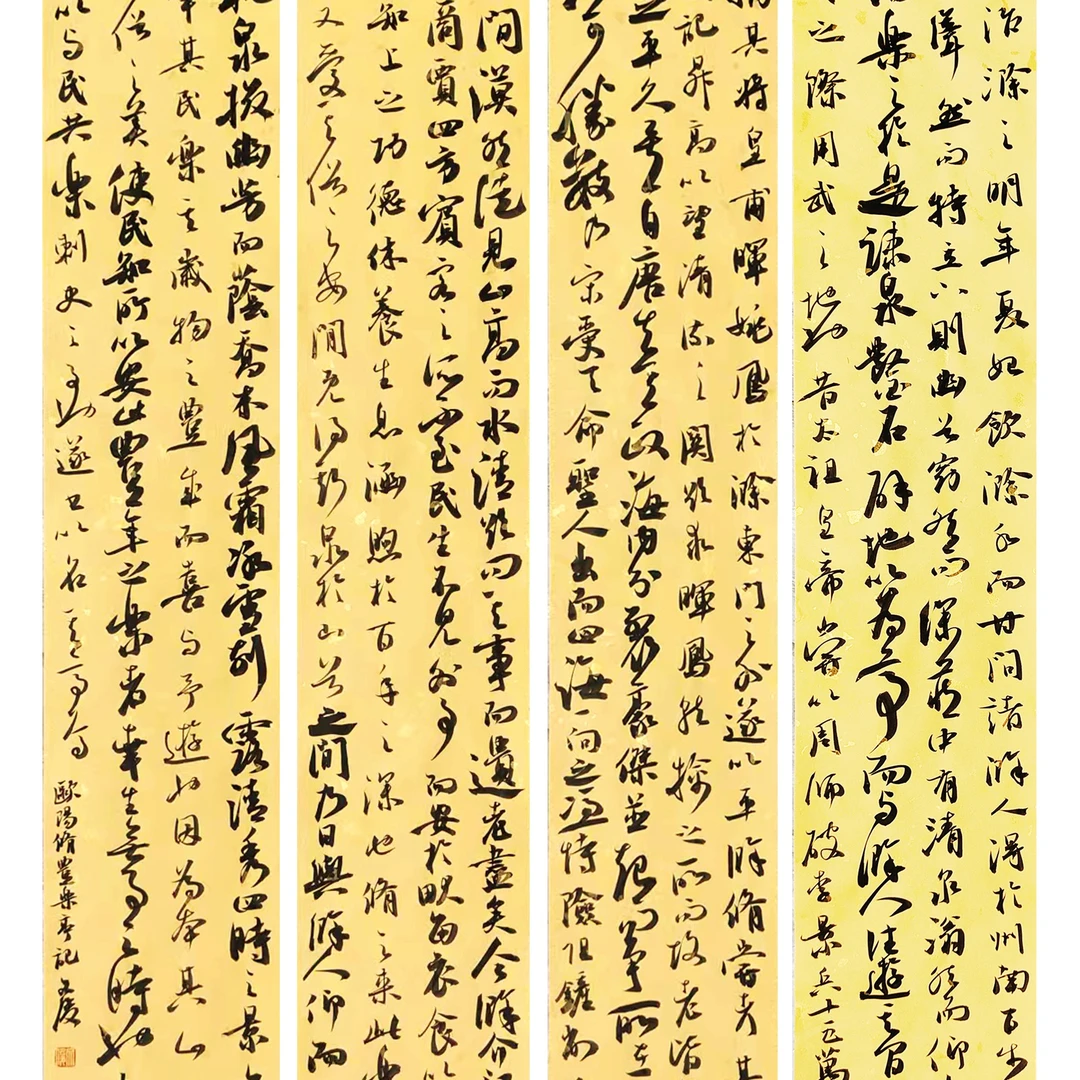 治滁之明年夏始飲滁水而甘問諸滁人得於州南百步
聳然而特立下則幽谷窈然而深藏中有清泉滃然而仰
樂之於是疎泉鑿石辟地以為亭而与滁人往遊其間
之際用武之地也昔太祖皇帝嘗以周師破李景兵十五萬
其將皇甫暉姚鳳於滁東門之外遂以平滁脩嘗考其
記昇高以望清流之關欲求暉鳳就擒之所而故老皆
平久矣自唐失其政海內分裂豪傑並起而爭所在
可勝數及宋受天命聖人出而四海一向之憑恃險阻鏟削
間漠然徒見山高而水清欲問其事而遺老盡矣今滁介江
商賈四方賓客之所不至民生不見外事而安於畎畝衣食以
知上之功德休養生息涵煦於百年之深也脩之來此樂
又愛其俗之安閒既得斯泉於山谷之間乃日與滁人仰而
泉掇幽芳而蔭喬木風霜冰雪刻露清秀四時之景
幸其民樂其歲物之豐成而喜与予遊也因為本其山
俗之美使民知所以安此豐年之樂者幸生無事之時也
以与民共樂刺史之事也遂書以名其亭焉
歐陽脩豐樂亭記